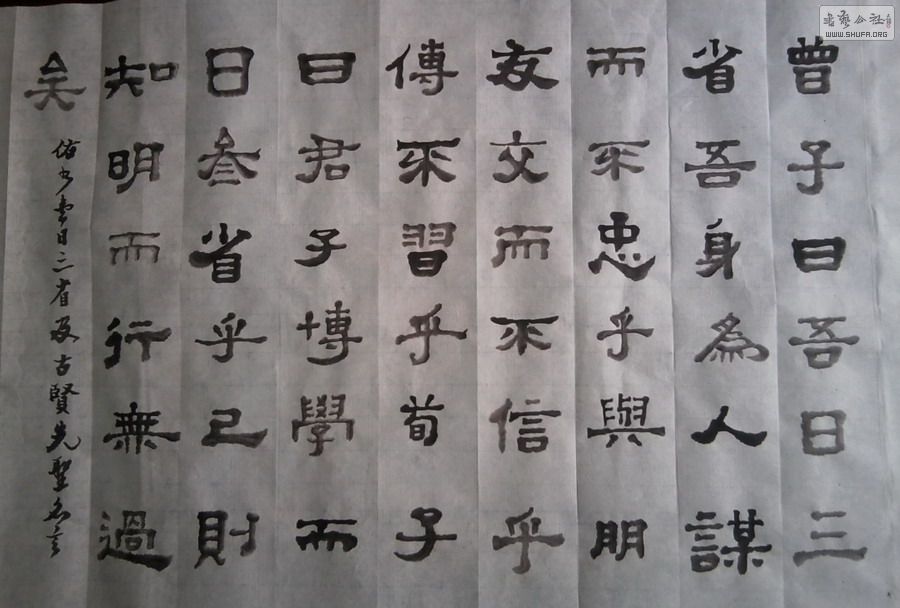 曾子曰吾日三
省吾身為人謀
而不忠乎與朋
友交而不信乎
傳不習乎荀子
曰君子博學而
日叁省乎己則
知明而行無過
矣
日三省及古賢先聖名言
書藝公社
WWW.SHUFA.ORG